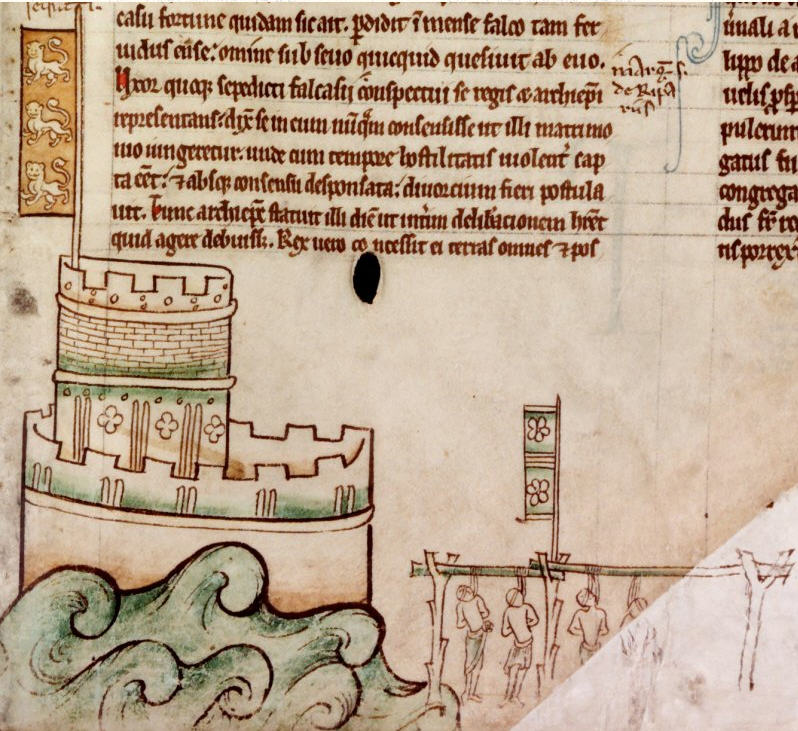 casu fortune quidam sic ait. ꝑdidit ĩ mense falco tam fer
uidus ense: omine sub seuo quicquid quesiuit ab euo.
Uxor quoqꝫ sepedicti falcasii ↄ̃spectui se regis ⁊ archiepĩ
representans: dix̃ se in eum nũq̃m consensisse ut illi matrimo
nio iungeretur. unde cum tempore hostilitatis uiolent̃ cap
ta eẽt: ⁊ absqꝫ consensu desponsata: diuorcium fieri postula
uit. Tunc archiepc̃ statuit illi diẽ ut int̃im delib̃acionem hr̃et
quid agere debuissꝫ. Rex uero co ncessit ei terras omnes ⁊ pos
de Ripa
riis
lippo de a
pulerunt
gatus fu
congrega